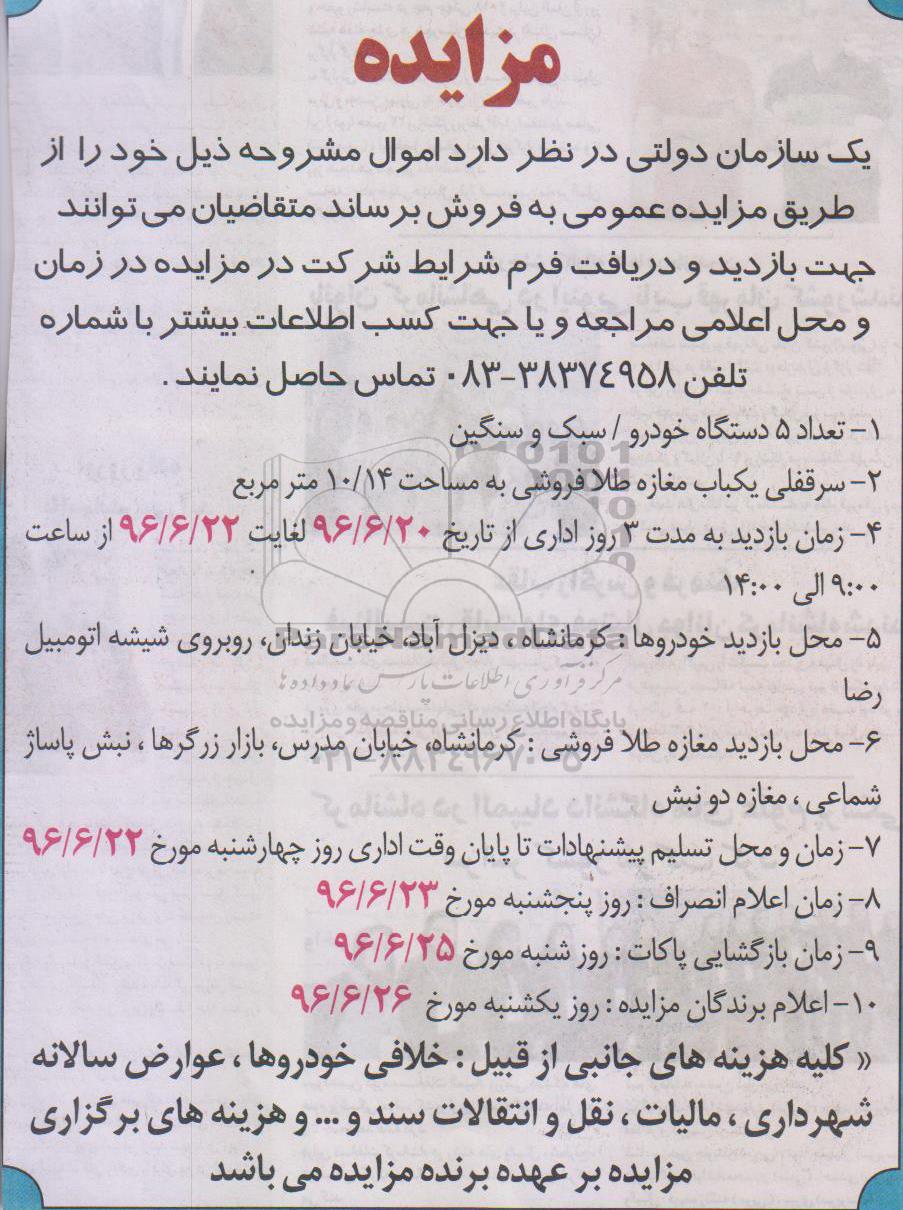 مزایده
یک سازمان دولتی در نظر دارد اموال مشروحه ذیل خود را از
طریق مزایده عمومی به فروش برساند متقاضیان می توانند
جهت بازدید و دریافت فرم شرایط شرکت در مزایده در زمان
و محل اعلامی مراجعه و یا جهت کسب اطلاعات بیشتر با شماره
تلفن ۳۸۳۷٤۹۵۸-۰۸۳ تماس حاصل نمایند .
۱- تعداد ۵ دستگاه خودرو / سبک و سنگین
۲- سرقفلی یکباب مغازه طلا فروشی به مساحت ۱۰/۱۴ متر مربع
۴- زمان بازدید به مدت ۳ روز اداری از تاریخ ۹۶/۶/۲۰ لغایت ۹۶/۶/۲۲ از ساعت
۹:۰۰ الی ۱۴:۰۰
۵- محل بازدید خودروها : کرمانشاه ، دیزل آباد، خیابان زندان، روبروی شیشه اتومبیل
رضا
مرکز فرآوری اطلاعات پارس نماد داده ها
پایگاه اطلاع رسانی مناقصه و مزایده
۶- محل بازدید مغازه طلا فروشی : کرمانشاه، خیابان مدرس، بازار زرگرها ، نبش پاساژ
شماعی ، مغازه دو نبش
۷- زمان و محل تسلیم پیشنهادات تا پایان وقت اداری روز چهارشنبه مورخ ۹۶/۶/۲۲
۸- زمان اعلام انصراف : روز پنجشنبه مورخ ۹۶/۶/۲۳
۹- زمان بازگشایی پاکات : روز شنبه مورخ ۹۶/۶/۲۵
۱۰- اعلام برندگان مزایده : روز یکشنبه مورخ ۹۶/۶/۲۶
« کلیه هزینه های جانبی از قبیل : خلافی خودروها ، عوارض سالانه
شهرداری ، مالیات ، نقل و انتقالات سند و ... و هزینه های برگزاری
مزایده بر عهده برنده مزایده می باشد